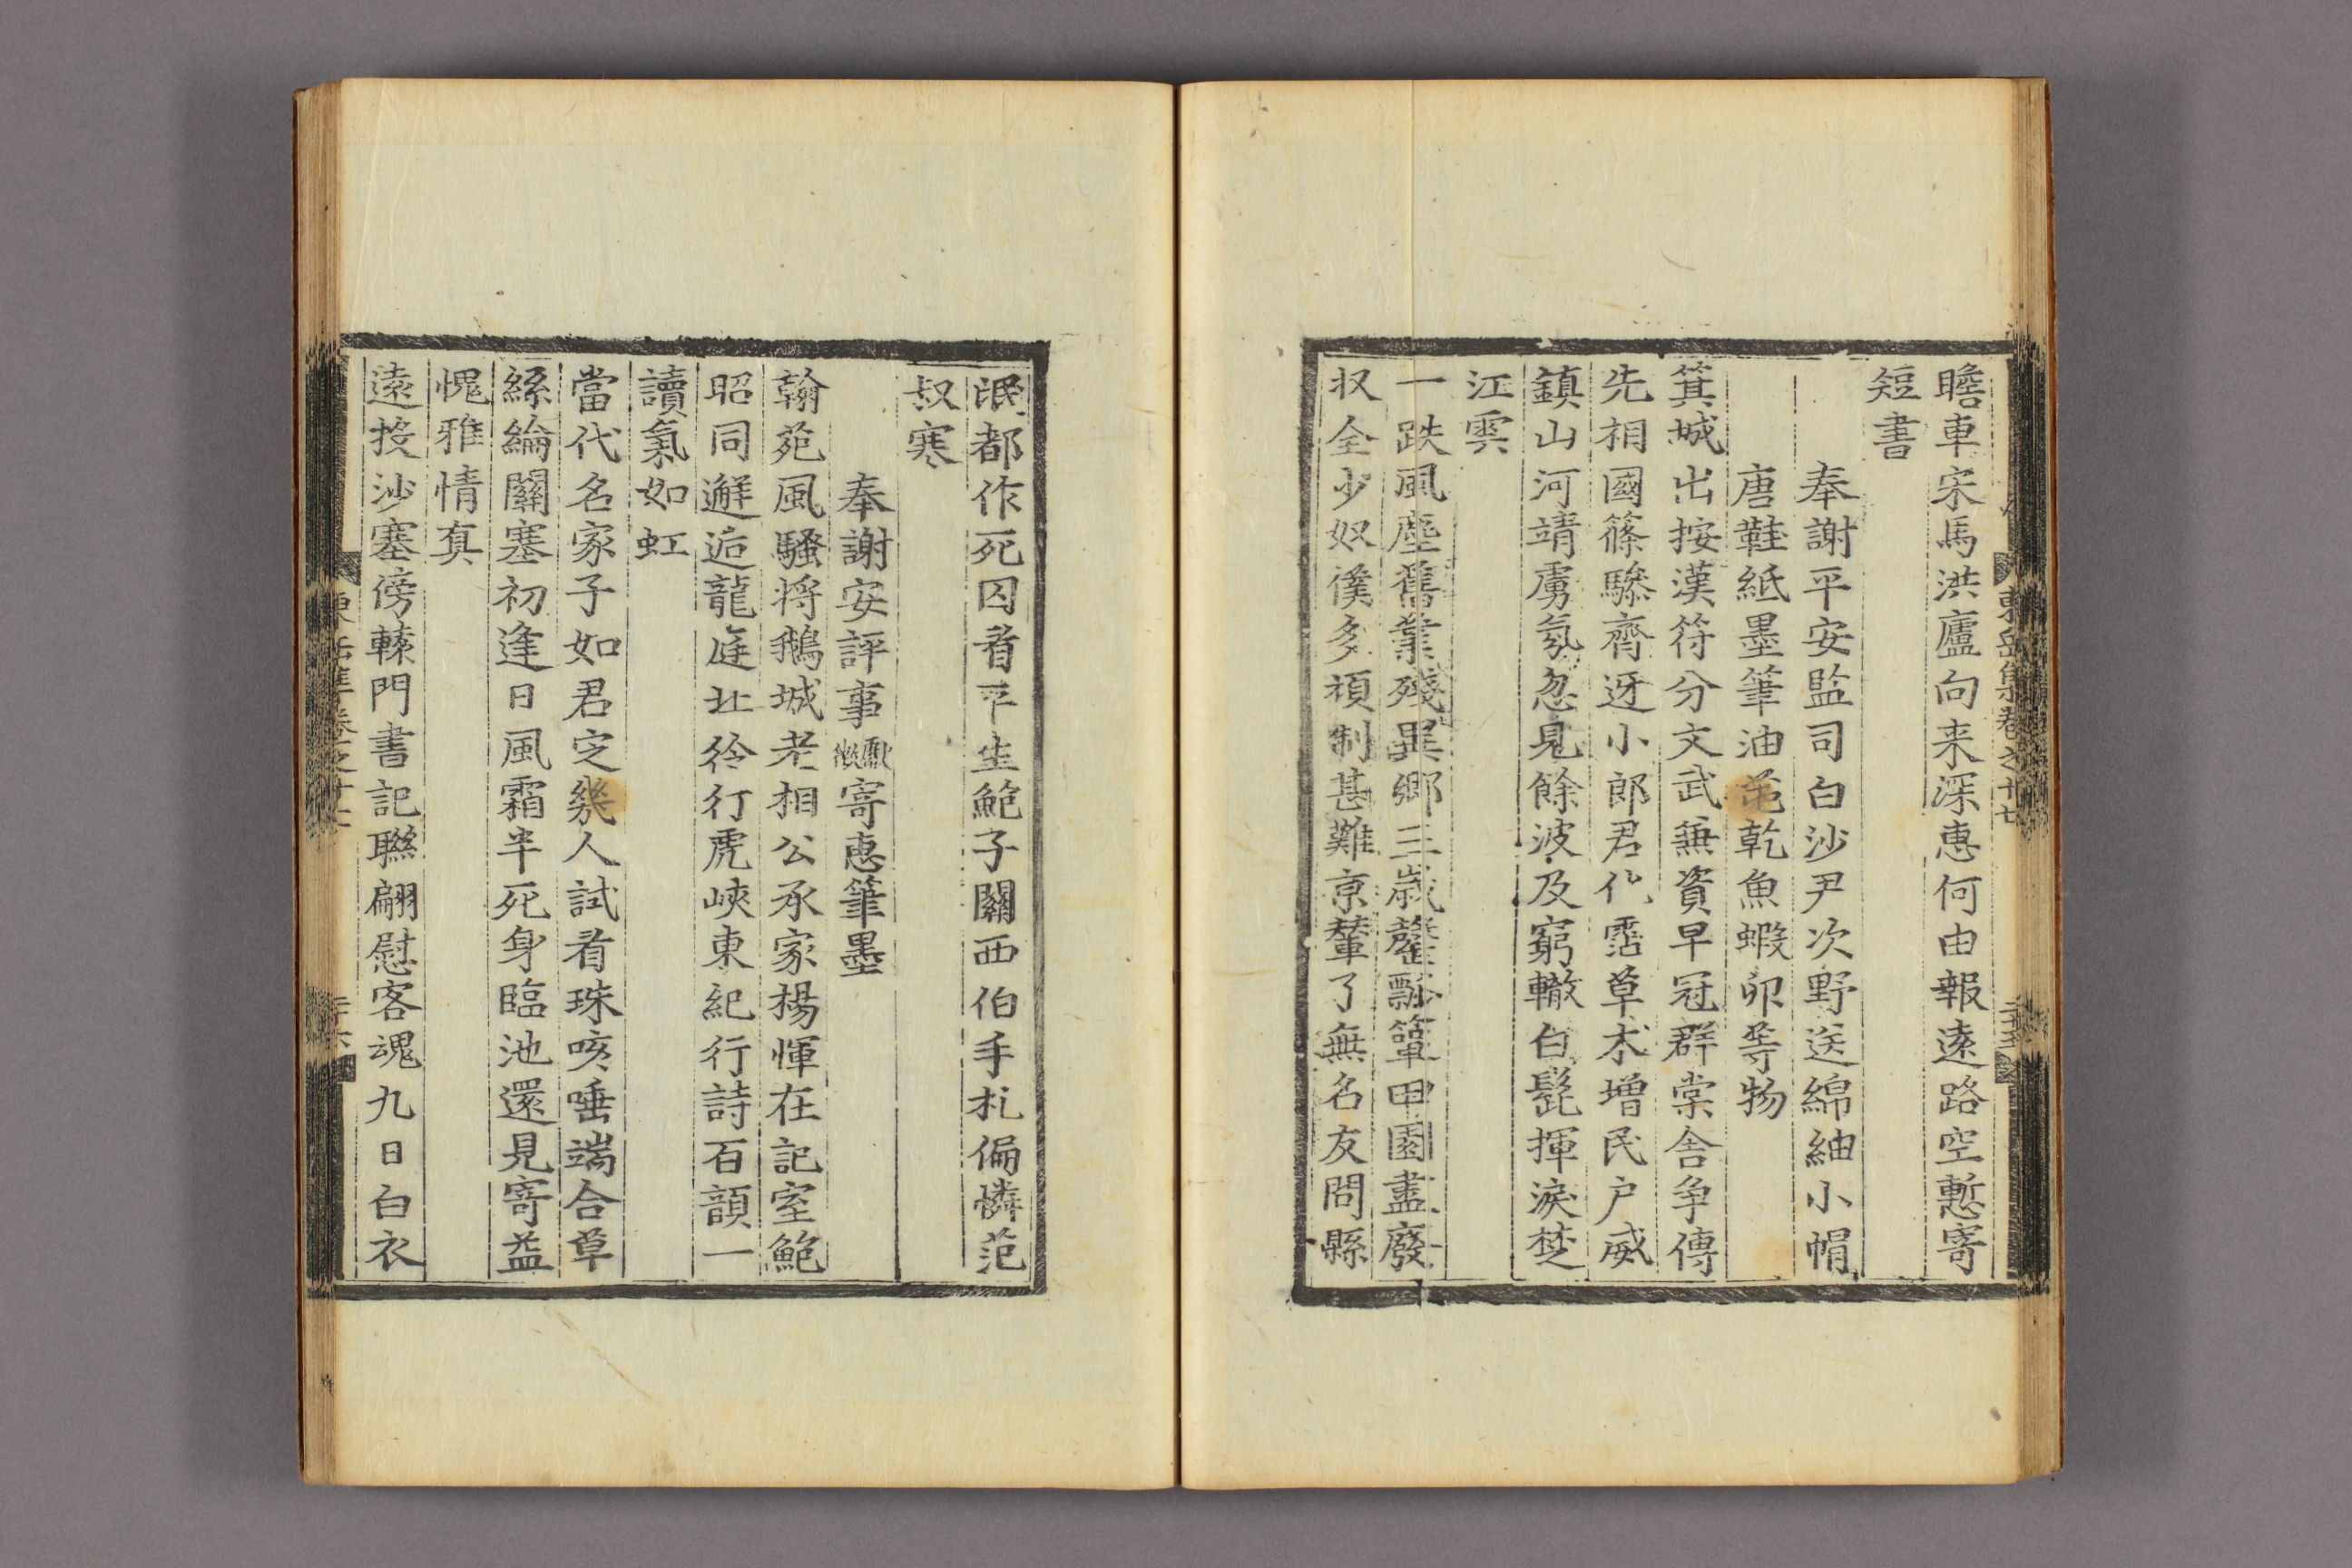 瞻車宋馬洪廬向来深惠何由報遠路空慙寄
短書
奉謝平安監司白沙尹次野送綿紬小帽
唐鞋紙墨筆油芚乾魚蝦卵等物
箕城出按漢符分文武兼資早冠群棠舎争傳
先相國篠驂齊迓小郎君化霑草木増民户威
鎮山河靖虜氛忽見餘波及窮轍白髭揮淚楚
江雲
一跌風塵舊業殘異鄉三歲罄瓢簞田園盡廢
収全少奴僕多頑制甚難京輦了無名友問縣
氓都作死囚看平生鮑子關西伯手札偏憐范
叔寒
奉謝安評事獻徵寄惠筆墨
翰苑風騷将鵝城老相公承家楊惲在記室鮑
昭同邂逅龍庭北伶行虎峽東紀行詩百韻一
讀氣如虹
當代名家子如君定幾人試看珠咳唾端合草
絲綸關塞初逢日風霜半死身臨池還見寄益
愧雅情真
遠投沙塞傍轅門書記聯翩慰客魂九日白衣
東岳集卷之十七
二十六